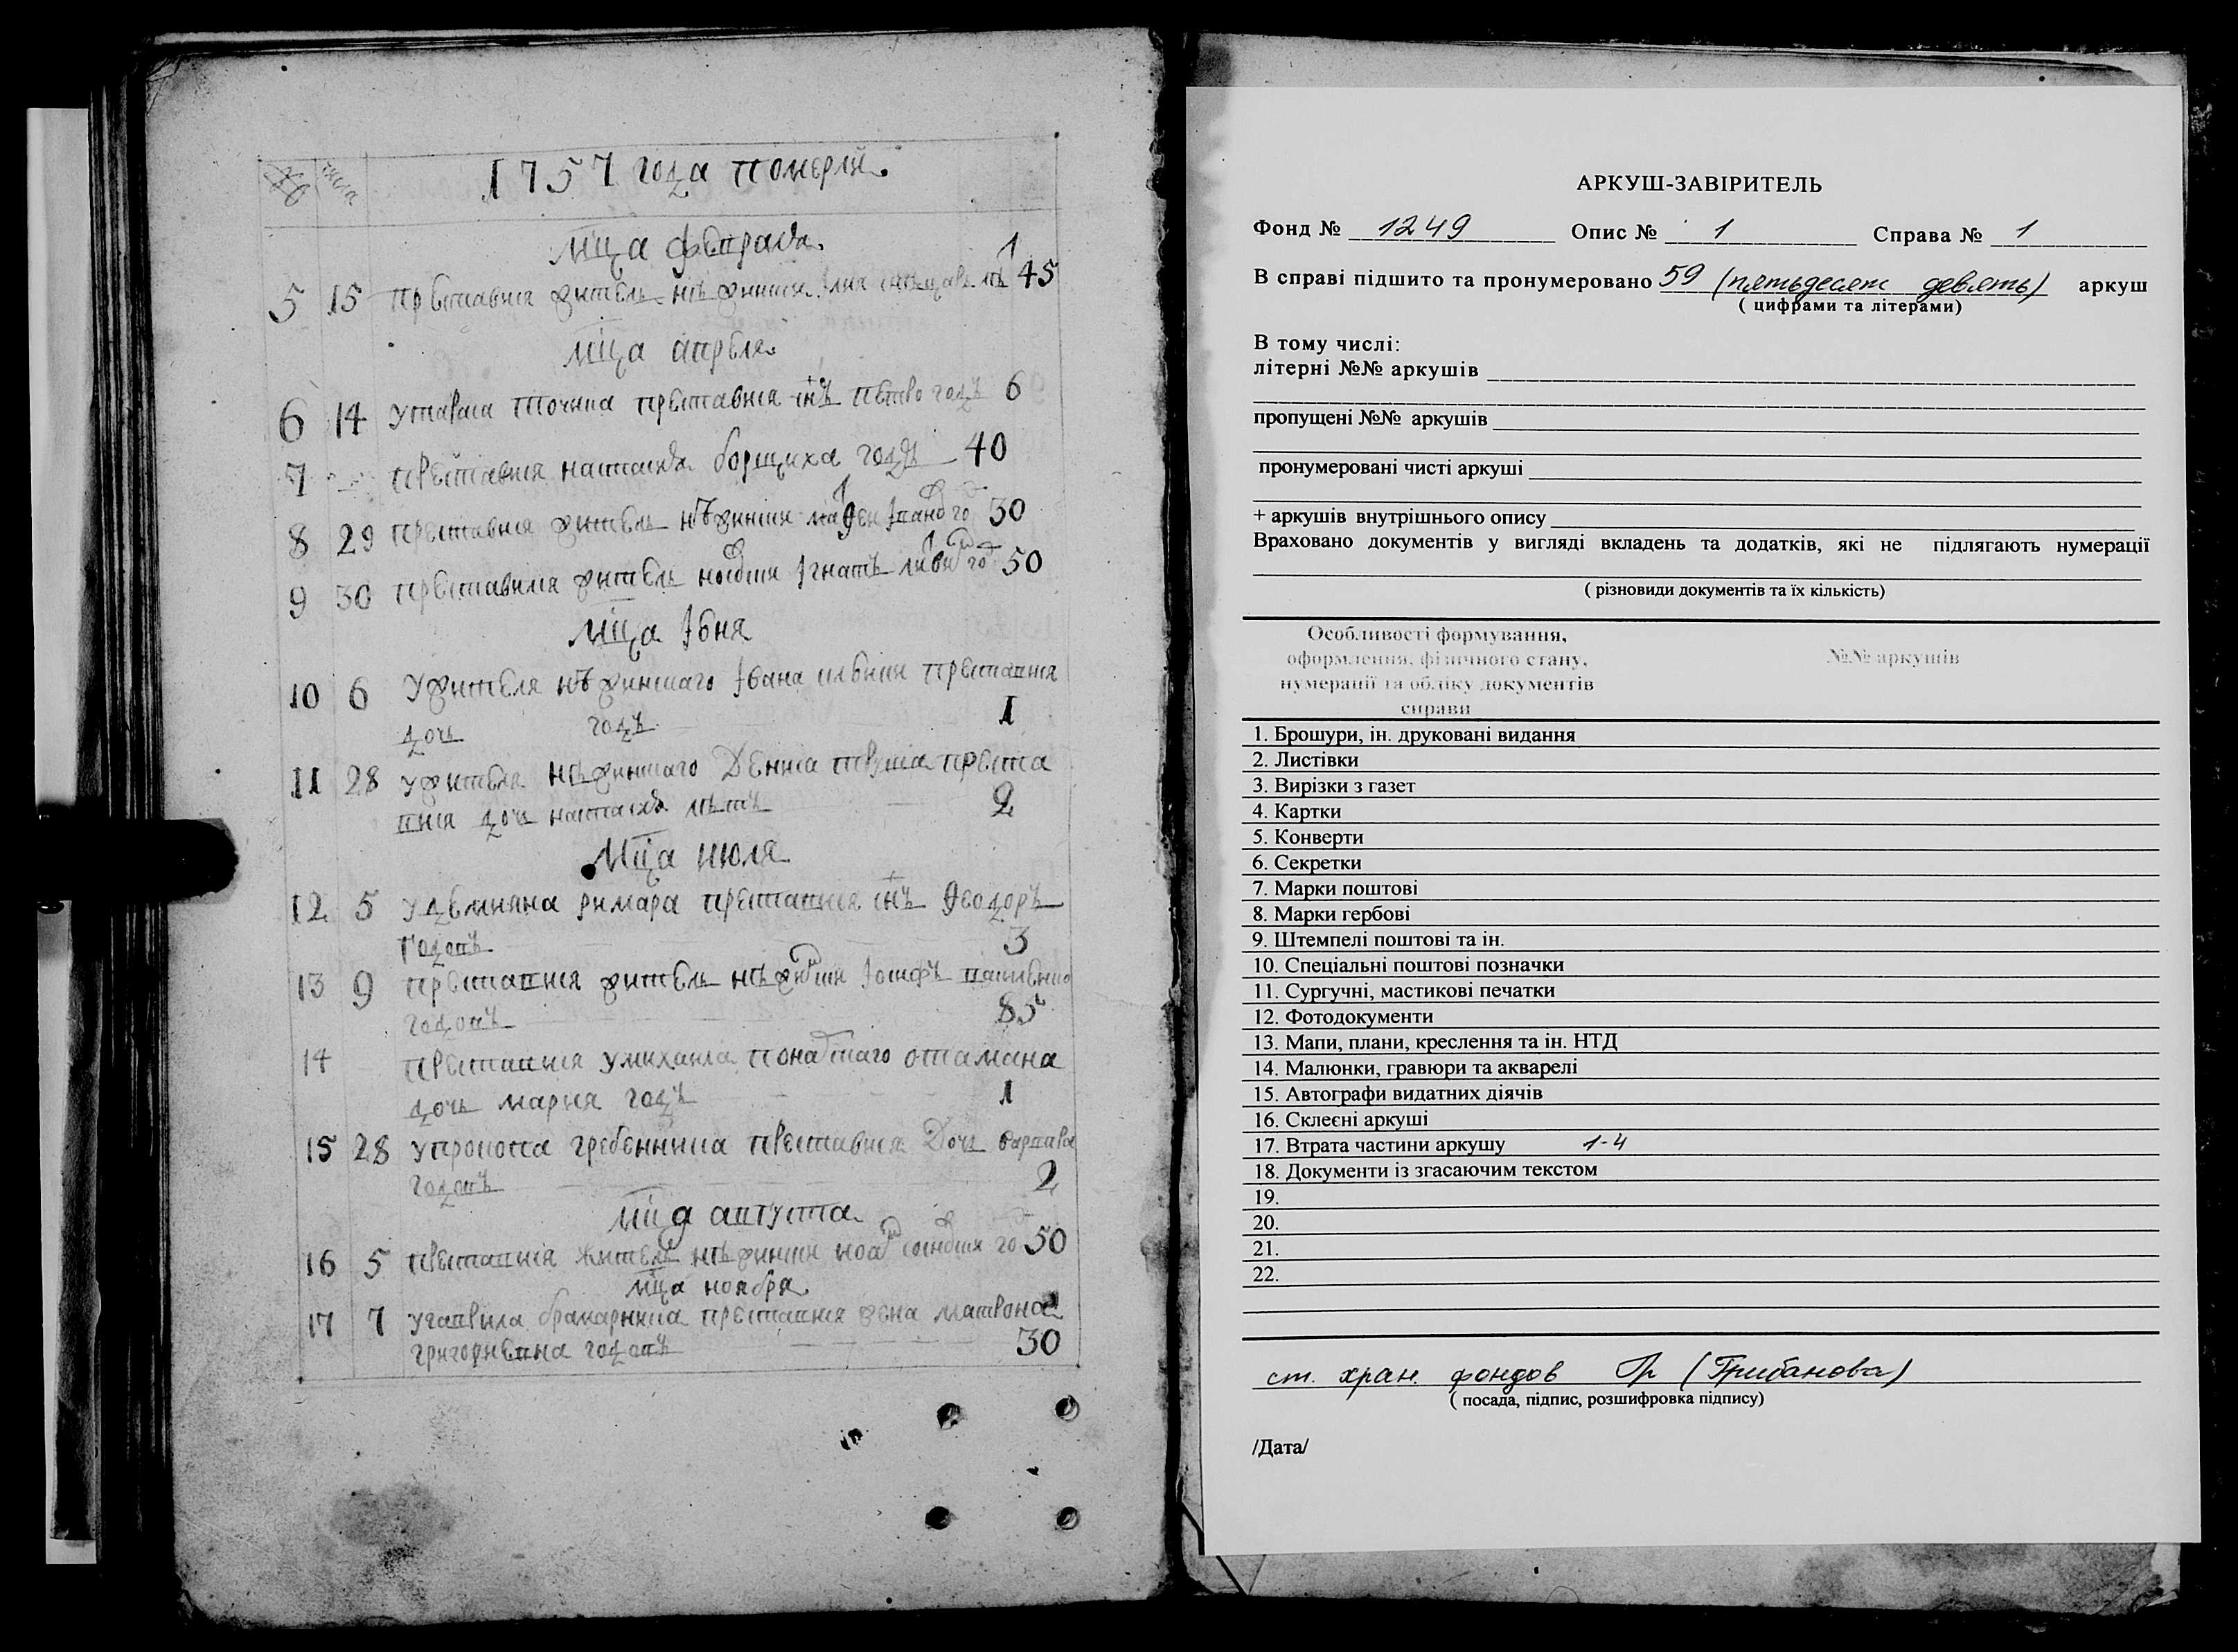 1757 года померлй.
числа
Мца февраля.
5 15 Преставися житель нѣжинский Илия 45
Мца апреля.
6 14 У преставися снъ годъ 6
7 преставися настасия борщиха годъ 40
8 29 преставися житель нѣжински го 50
9 30 преставился житель Игнатъ го 50
Мца Iвня
10 6 У жителя нѣжиншаго Iвана преставися
дочь годъ 1
11 28 У жителя нѣжиншаго Дениса преста
вися дочь настасия лѣтъ 2
Мца июля
12 5 У демияна римара преставися снъ Ѳеодоръ
годовъ 3
13 9 преставися житель Iосифъ
годовъ 85
14 преставися у михаила отамана
дочь мария годъ 1
15 28 У прокопа гребенника преставися дочь варвара
годовъ 2
Мца августа
16 5 преставися житель нѣжински го 50
Мца ноября
17 7 У гаврила преставися жена матрона
григориевна годовъ 30
АРКУШ-ЗАВІРИТЕЛЬ
Фонд № 1249 Опис № 1 Справа № 1
В справі підшито та пронумеровано 59 (пятьдесят девять) аркуш
( цифрами та літерами)
В тому числі:
літерні №№ аркушів
пропущені №№ аркушів
пронумеровані чисті аркуші
+ аркушів внутрішнього опису
Враховано документів у вигляді вкладень та додатків, які не підлягають нумерації
( різновиди документів та їх кількість)
Особливості формування,
оформлення, фізичного стану, №№ аркушів
нумерації та обліку документів
справи
1. Брошури, ін. друковані видання
2. Листівки
3. Вирізки з газет
4. Картки
5. Конверти
6. Секретки
7. Марки поштові
8. Марки гербові
9. Штемпелі поштові та ін.
10. Спеціальні поштові позначки
11. Сургучні, мастикові печатки
12. Фотодокументи
13. Мапи, плани, креслення та ін. НТД
14. Малюнки, гравюри та акварелі
15. Автографи видатних діячів
16. Склеєні аркуші
17. Втрата частини аркушу 1-4
18. Документи із згасаючим текстом
19.
20.
21.
22.
ст. хран. фондов (Грибанова)
( посада, підпис, розшифровка підпису)
/Дата/